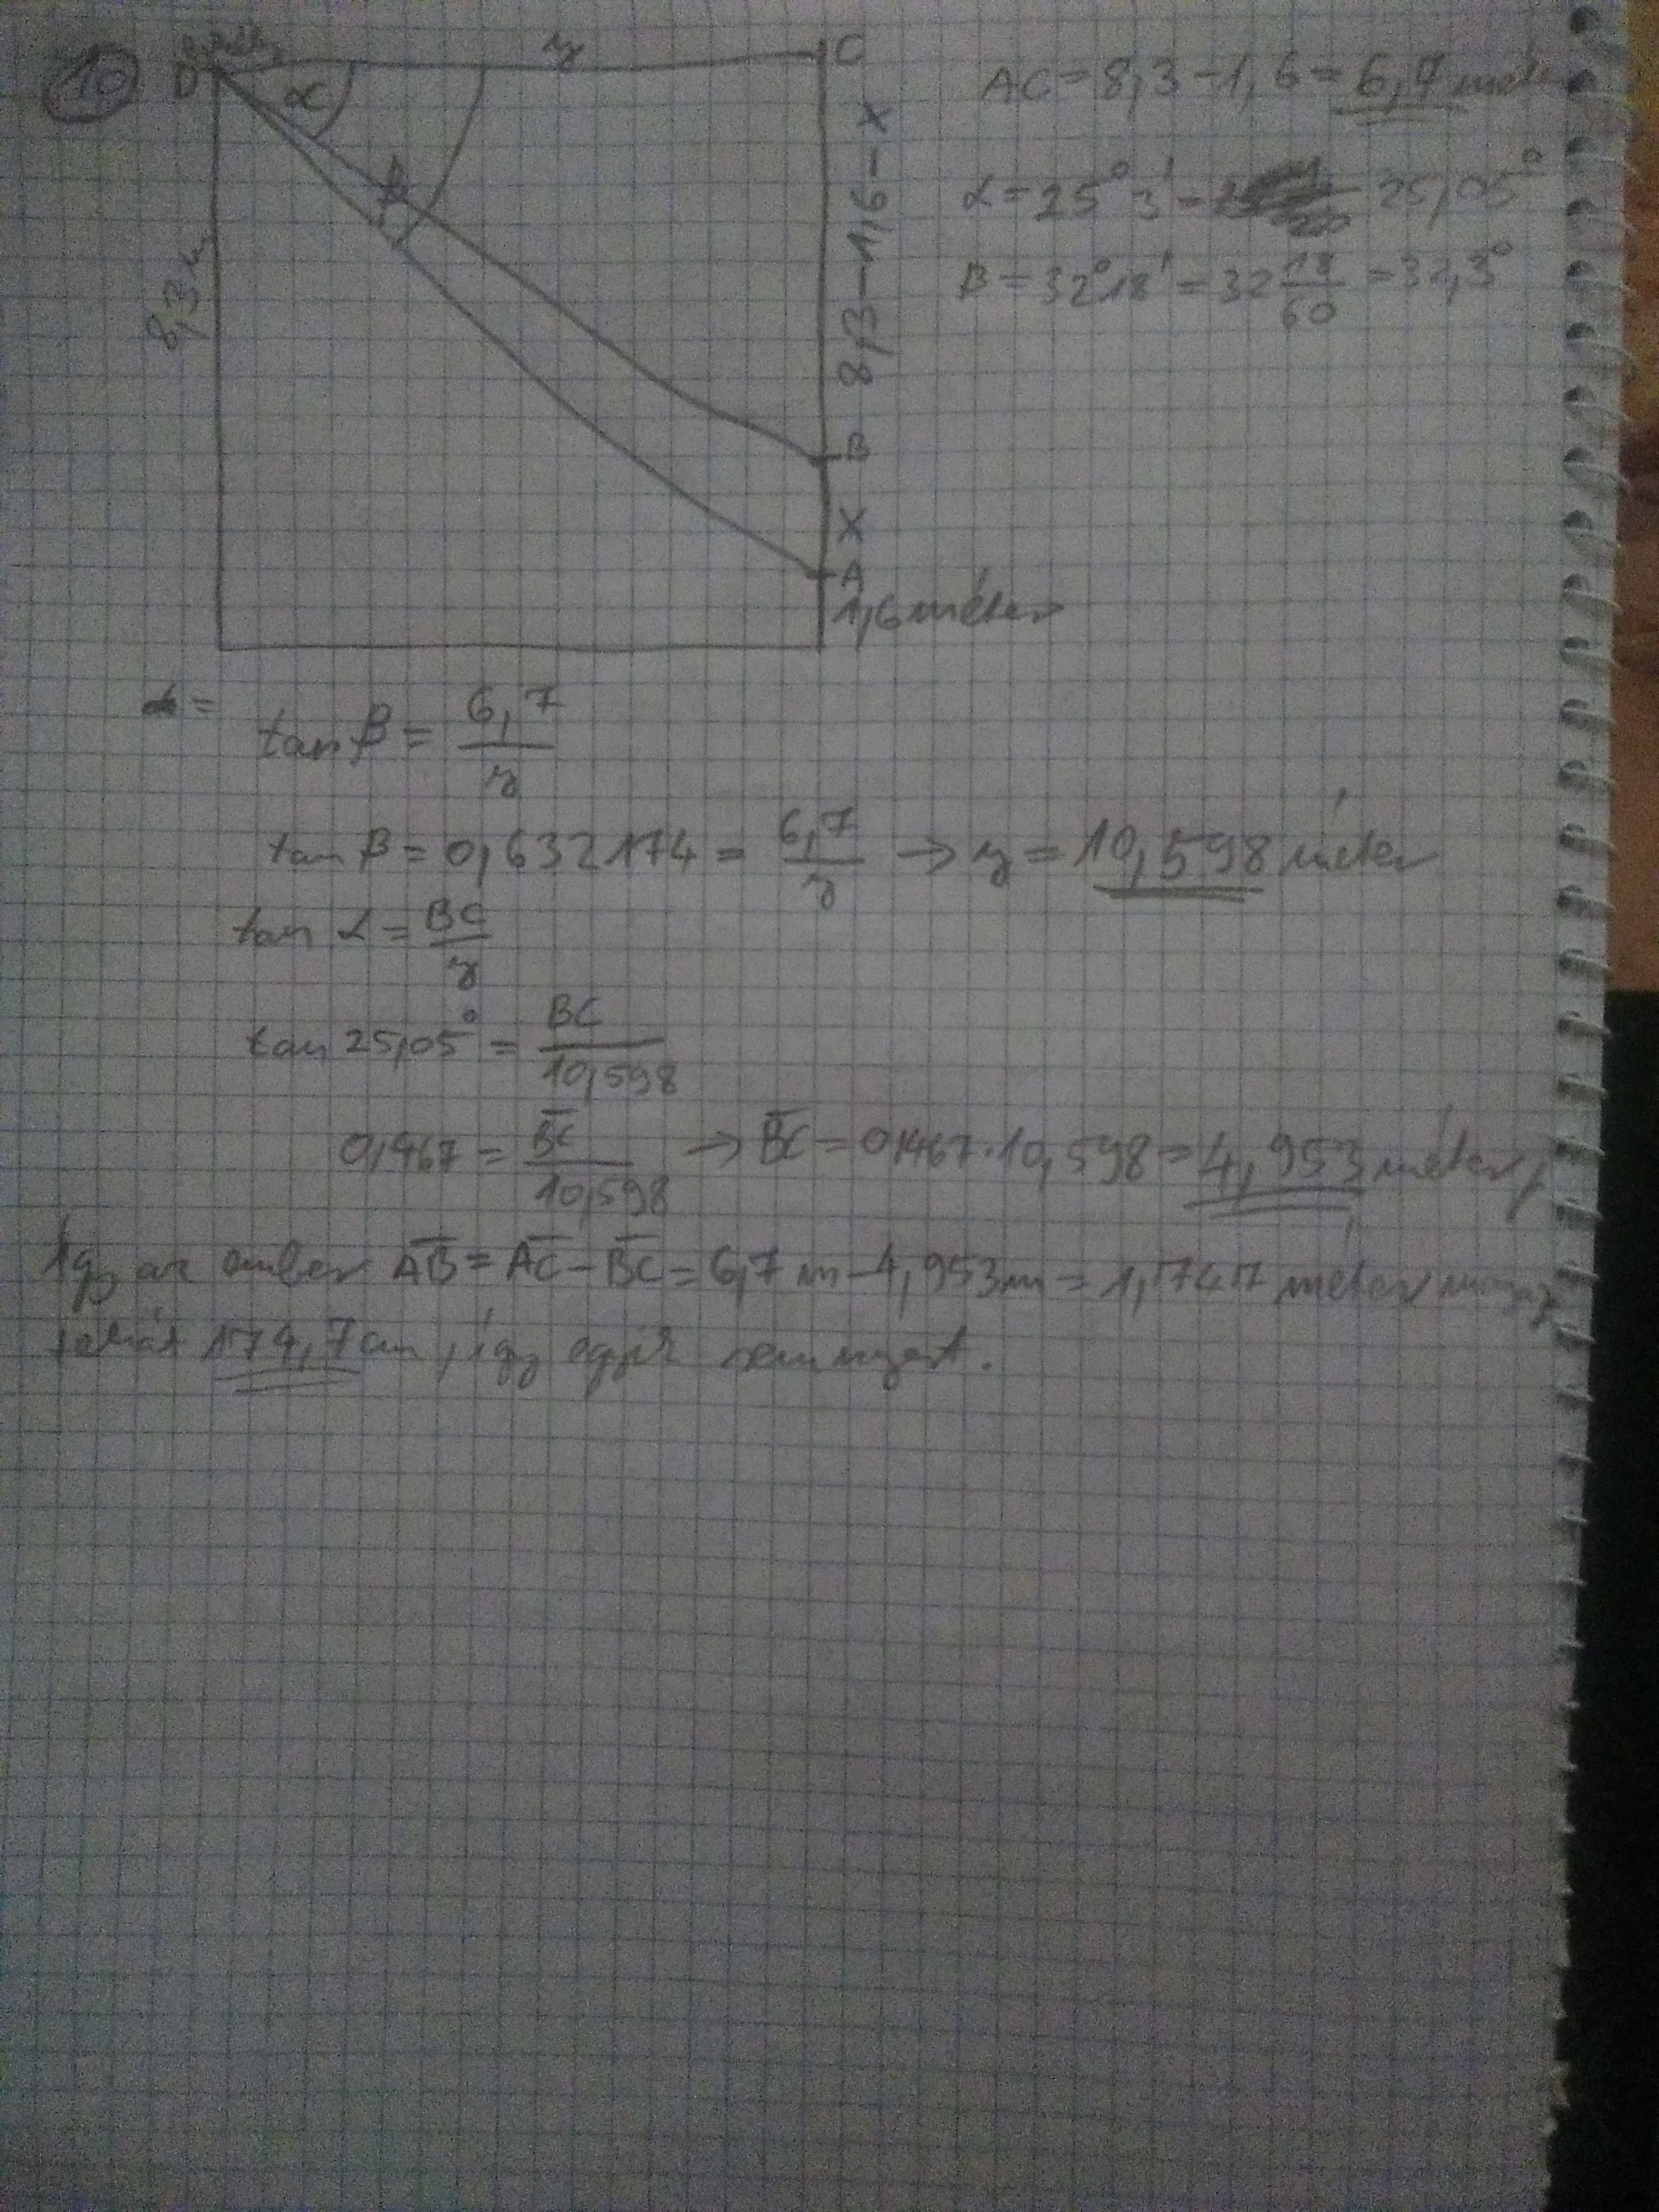 10
D
α
y
C
β
8,3 m
8,3-1,6-x
B
x
A
1,6 méter
AC = 8,3 - 1,6 = 6,7 méter
α = 25° 3' = 25,05°
β = 32° 18' = 32 18/60 = 32,3°
tan β = 6,7/y
tan β = 0,632174 = 6,7/y → y = 10,598 méter
tan α = BC/y
tan 25,05° = BC/10,598
0,467 = BC/10,598 → BC = 0,467 · 10,598 = 4,953 méter,
Így az ember AB = AC - BC = 6,7 m - 4,953 m = 1,747 méter magas
tehát 174,7 cm, így